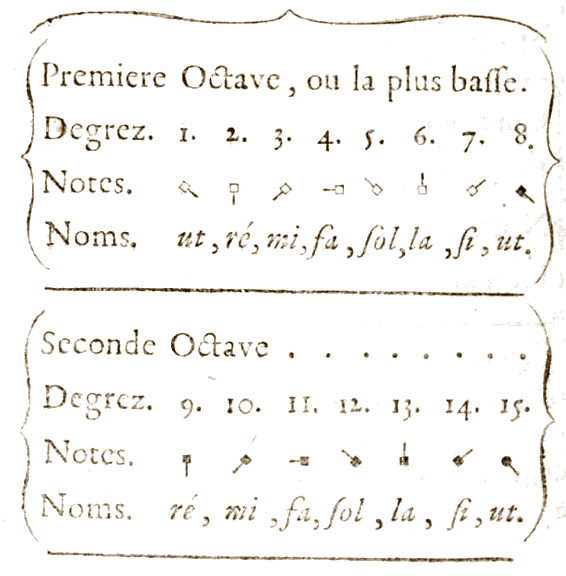 Premiere Octave, ou la plus baſſe.
Degrez. 1. 2. 3. 4. 5. 6. 7. 8.
Notes.
Noms. ut, ré, mi, fa, ſol, la, ſi, ut.
Seconde Octave . . . . . . . .
Degrez. 9. 10. 11. 12. 13. 14. 15.
Notes.
Noms. ré, mi, fa, ſol, la, ſi, ut.